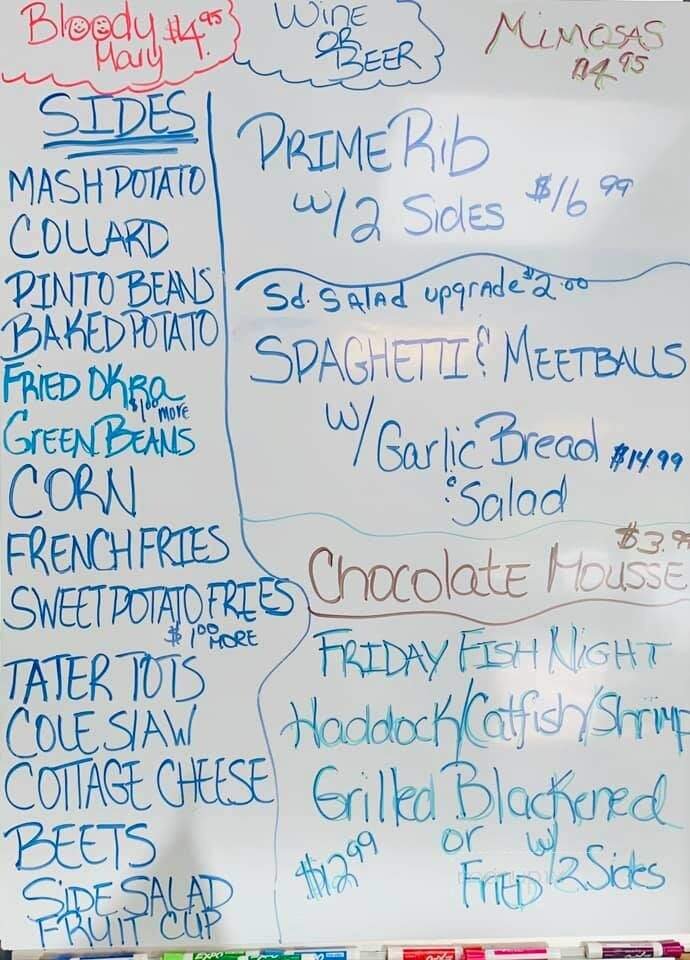 Bloody
Mary $4.95
Wine
OR
BEER
MiMOSAS
$4.95
SIDES
MASH POTATO
COLLARD
PINTO BEANS
BAKED POTATO
FRiED OKRa
$1.00 MORE
GREEN BEANS
CORN
FRENCH FRIES
SWEET POTATO FRIES
$1.00 MORE
TATER TOTS
COLE SlAW
COTTAGE CHEESE
BEETS
SiDE SALAD
FRUIT CUP
PRIME Rib
w/2 Sides $16.99
Sd. SALAd upgrade $2.00
SPAGHETTI & MEETBALLS
w/ Garlic Bread $14.99
& Salad
$3.9
Chocolate Mousse
FRIDAY FISH NIGHT
Haddock/Catfish/Shrimp
Grilled Blackened
$12.99 or w/
FRiED 2 Sides
EXPO